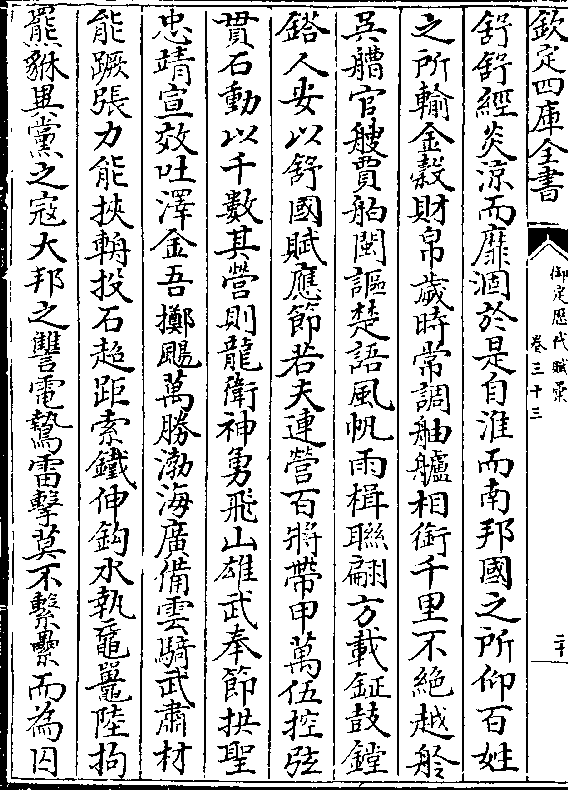 欽定四庫全書
御定歷代賦彙
卷三十三
二十
舒舒經炎涼而靡涸於是自淮而南邦國之所仰百姓
之所輸金穀財帛歲時常調舳艫相銜千里不絕越舲
吳艚官艘賈舶閩謳楚語風帆雨楫聯翩方載鉦鼓鏜
鎝人安以舒國賦應節若夫連營百將帶甲萬伍控弦
貫石動以千數其營則龍衛神勇飛山雄武奉節拱聖
忠靖宣效吐渾金吾擲颺萬勝渤海廣備雲騎武肅材
能蹶張力能挾輈投石超距索鐵伸鈎水執黿鼉陸拘
羆貅異黨之寇大邦之讐電鷙雷擊莫不繫纍而為囚